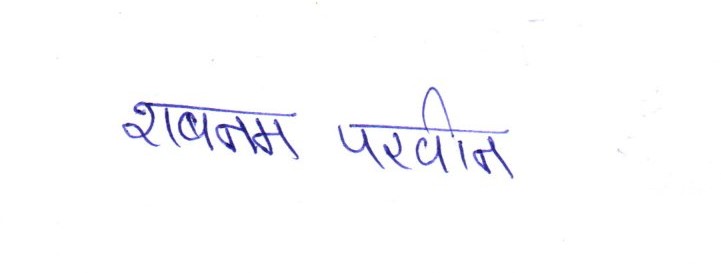 शबनम परवीन